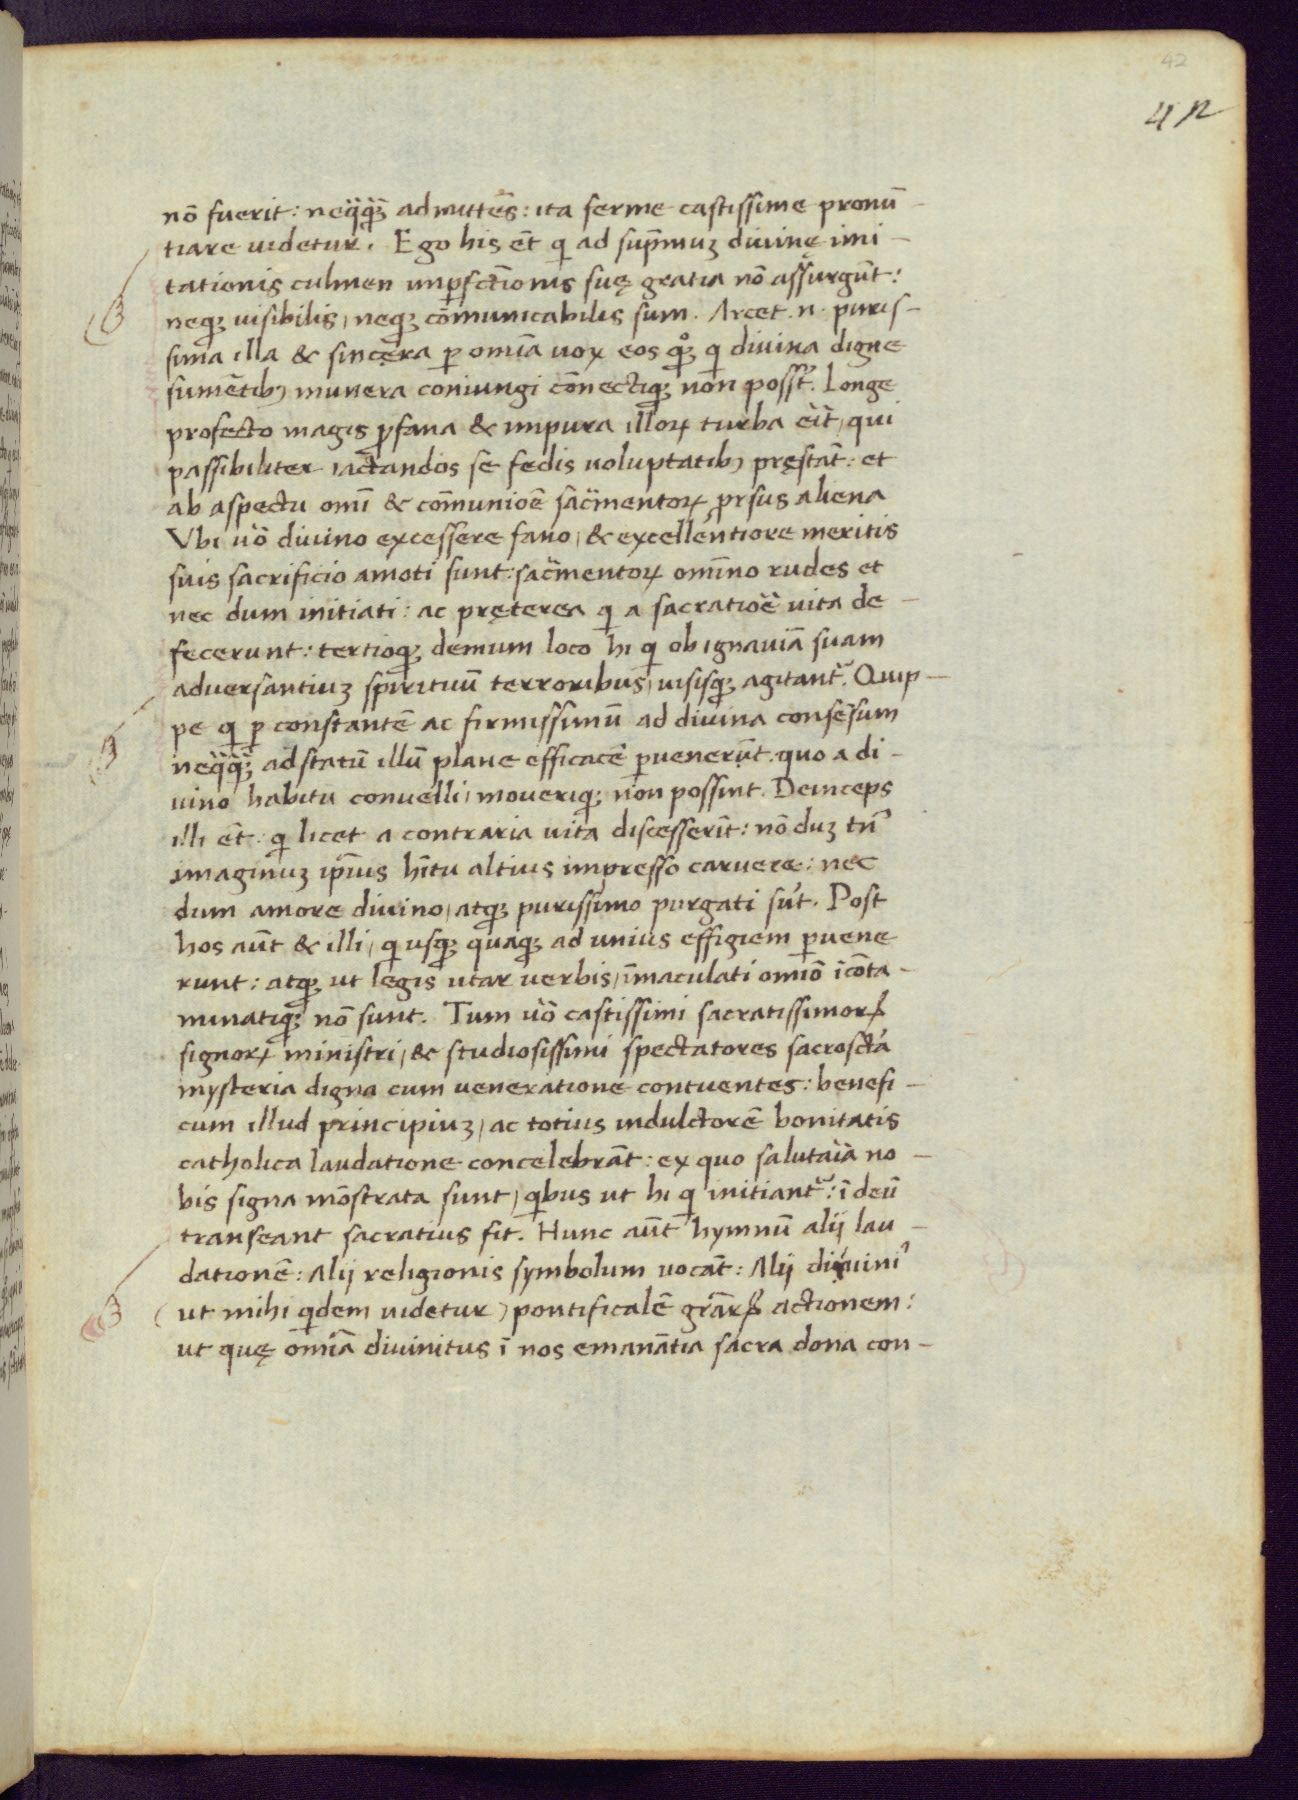 42
42
nō fuerit: neq̈q̈ꝫ admittēs: ita ferme castissime pronū-
tiare uidetur. Ego his ēt qi ad sup̄muꝫ diuinę imi-
tationis culmen imꝑfctīonis suę gratia nō assurgūt:
neqꝫ uisibilis, neqꝫ cōmunicabilis sum. Arcet .n. puris-
sima illa & sincera ꝑ omīa uox eos qͦꝫ qi diuina digne
sumētibꝫ munera coniungi cōnectiqꝫ non possꝫ. Longe
profecto magis ꝓfana & impura illoꝝ turba eīt, qui
passibiliter iactandos se fedis uoluptatibꝫ pręstāt: et
ab aspectu omī & cōmunioē sac̈mentoꝝ ꝓrsus aliena
Vbi uō diuino excessere fano, & excellentiore meritis
suis sacrificio amoti sunt: sac̈mentoꝝ omīno rudes et
nec dum initiati: ac pręterea qi a sacratioē uita de-
fecerunt: tertioqꝫ demum loco hi qi ob ignauiā suam
aduersantiuꝫ spirituū terroribus, uisisqꝫ agitantᷣ. Quip-
pe qi ꝑ constantē ac firmissimū ad diuina consēsum
neq̈q̈ꝫ ad statū illū plane efficacē ꝑuenerūt: quo a di-
uino habitu conuelli, moueriqꝫ non possint. Deinceps
illi ēt: qi licet a contraria uita discesserīt: nō duꝫ tn̄
imaginuꝫ ip̄ius hītu altius impresso caruere: nec
dum amore diuino, atqꝫ purissimo purgati sūt. Post
hos aūt & illi, qi usqꝫ quaqꝫ ad unius effigiem ꝑuene
runt: atqꝫ ut legis utar uerbis, īmaculati omīo īcōta-
minatiqꝫ nō sunt. Tum uō castissimi sacratissimoꝝ
signoꝝ ministri, & studiosissimi spectatores sacrosctā
mysteria digna cum ueneratione contuentes: benefi-
cum illud principiuꝫ, ac totius indultorē bonitatis
catholica laudatione concelebrāt: ex quo salutaīa no-
bis signa mōstrata sunt, qibus ut hi qi initiantᷣ: ī deū
transeant sacratius fit. Hunc aūt hymnū alij lau-
dationē: Alij religionis symbolum uocāt: Alij diuini᾽
(ut mihi qidem uidetur) pontificalē gr̄aꝝ actionem:
ut quę omīa diuinitus ī nos emanātia sacra dona con-